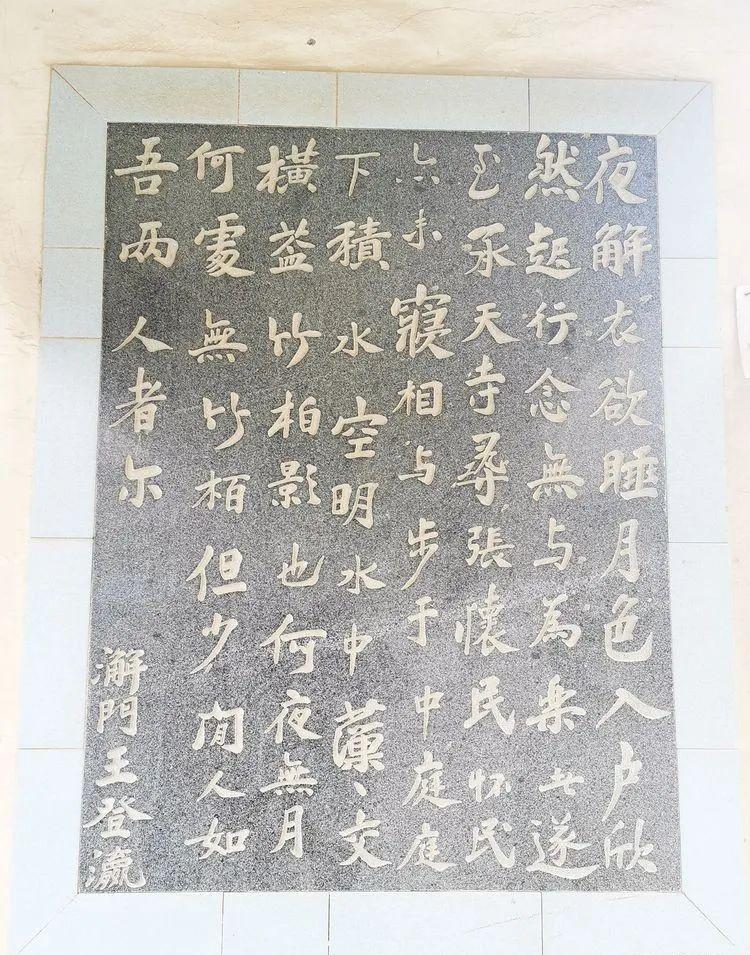 夜解衣欲睡月色入户欣
然起行念無与為楽者遂
至承天寺尋張懷民怀民
亦未寢相与步于中庭庭
下積水空明水中、交
橫葢竹柏影也何夜無月
何處無竹栢但少閒人如
吾两人者尔
澥門王登瀛